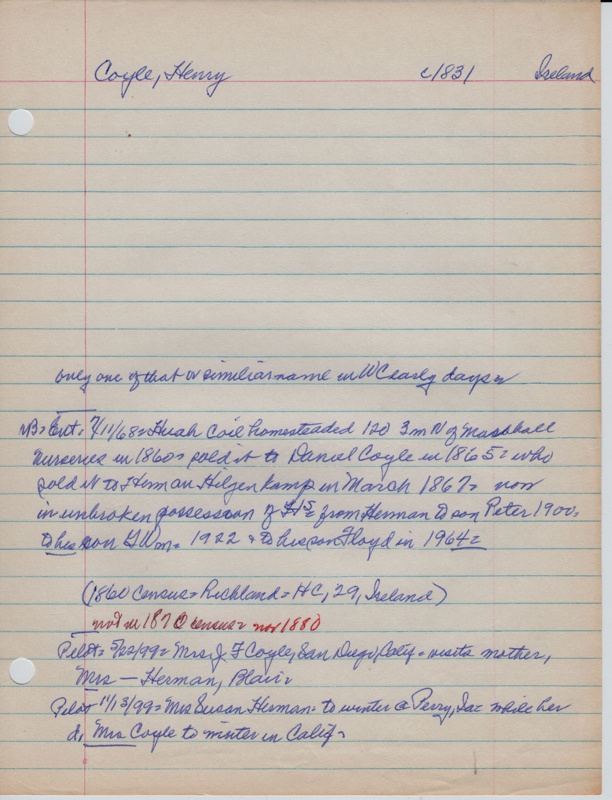 Coyle, Henry c1831 Ireland
only one of that or similiar name in WC early days=
Ent= 7/11/68= Hugh Coil homesteaded 120 3 m N of Marshall
Nurseries in 1860= sold it to Daniel Coyle in 1865= who
sold it to Herman Hilgenkamp in March 1867= now
in unbroken possession of H's= from Herman to son Peter 1900=
to his son G Wm= 1922 & to his son Floyd in 1964=
(1860 Census= Richland= HC, 29, Ireland)
not in 1870 census= nor 1880
Pilot= 5/22/99= Mrs J. F Coyle, San Diego, Calif= visits mother,
Mrs — Herman, Blair=
Pilot 11/13/99= Mrs Susan Herman= to winter @ Perry, Ia= while her
d, Mrs Coyle to winter in Calif=